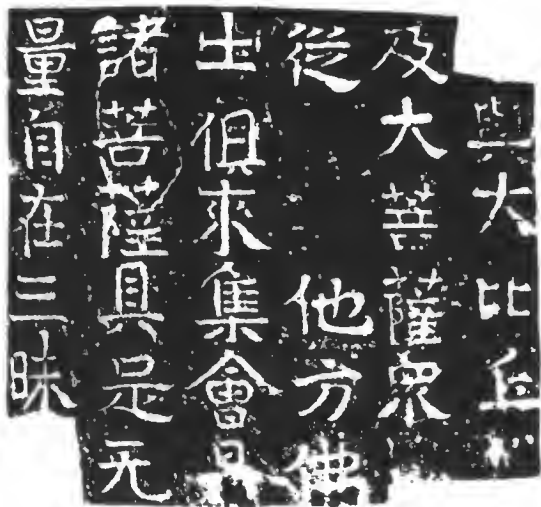 與大比丘
及大菩薩眾
從 他方佛
土俱來集會
諸菩薩具是无
量自在三昧